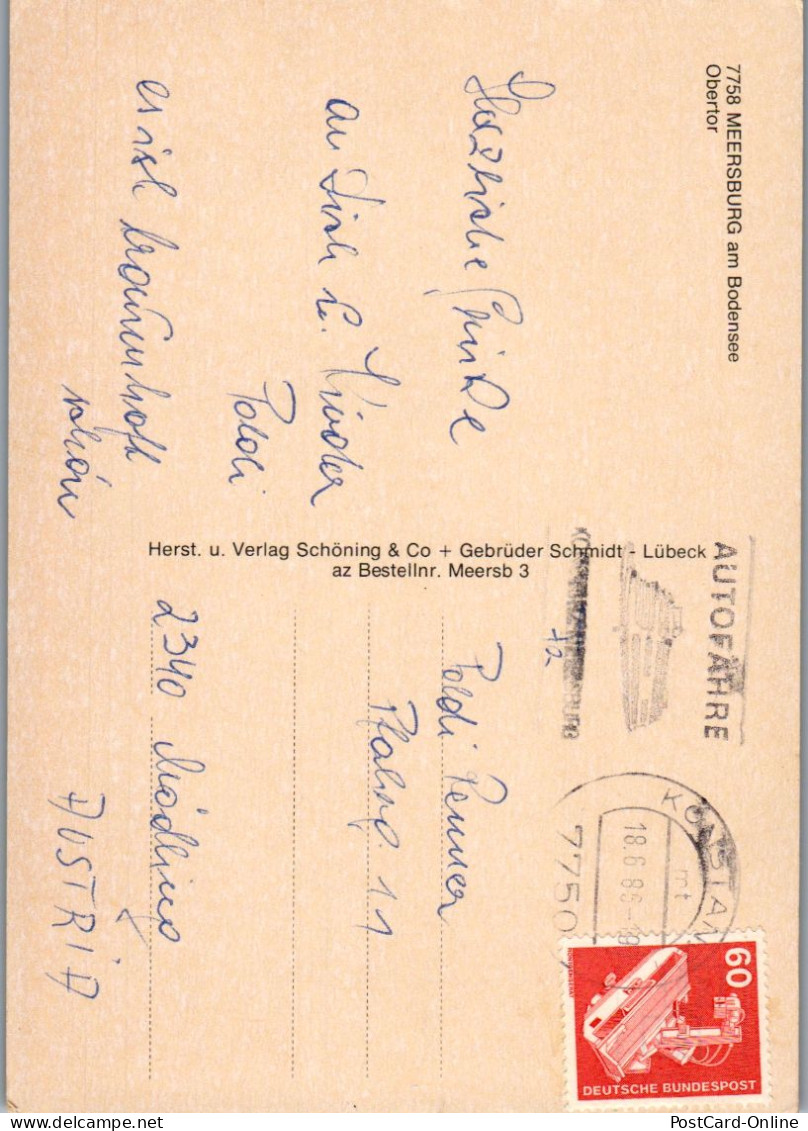 7758 MEERSBURG am Bodensee
Obertor
Herzliche Grüße
an Dich u. Kinder
Poldi
es ist traumhaft
schön
Herst. u. Verlag Schöning & Co + Gebrüder Schmidt - Lübeck
az Bestellnr. Meersb 3
AUTOFÄHRE
KONSTANZ
mt
18.6.86-18
7750
60
DEUTSCHE BUNDESPOST
Poldi Renner
11
2340 Mödling
AUSTRIA
PostCard-Online